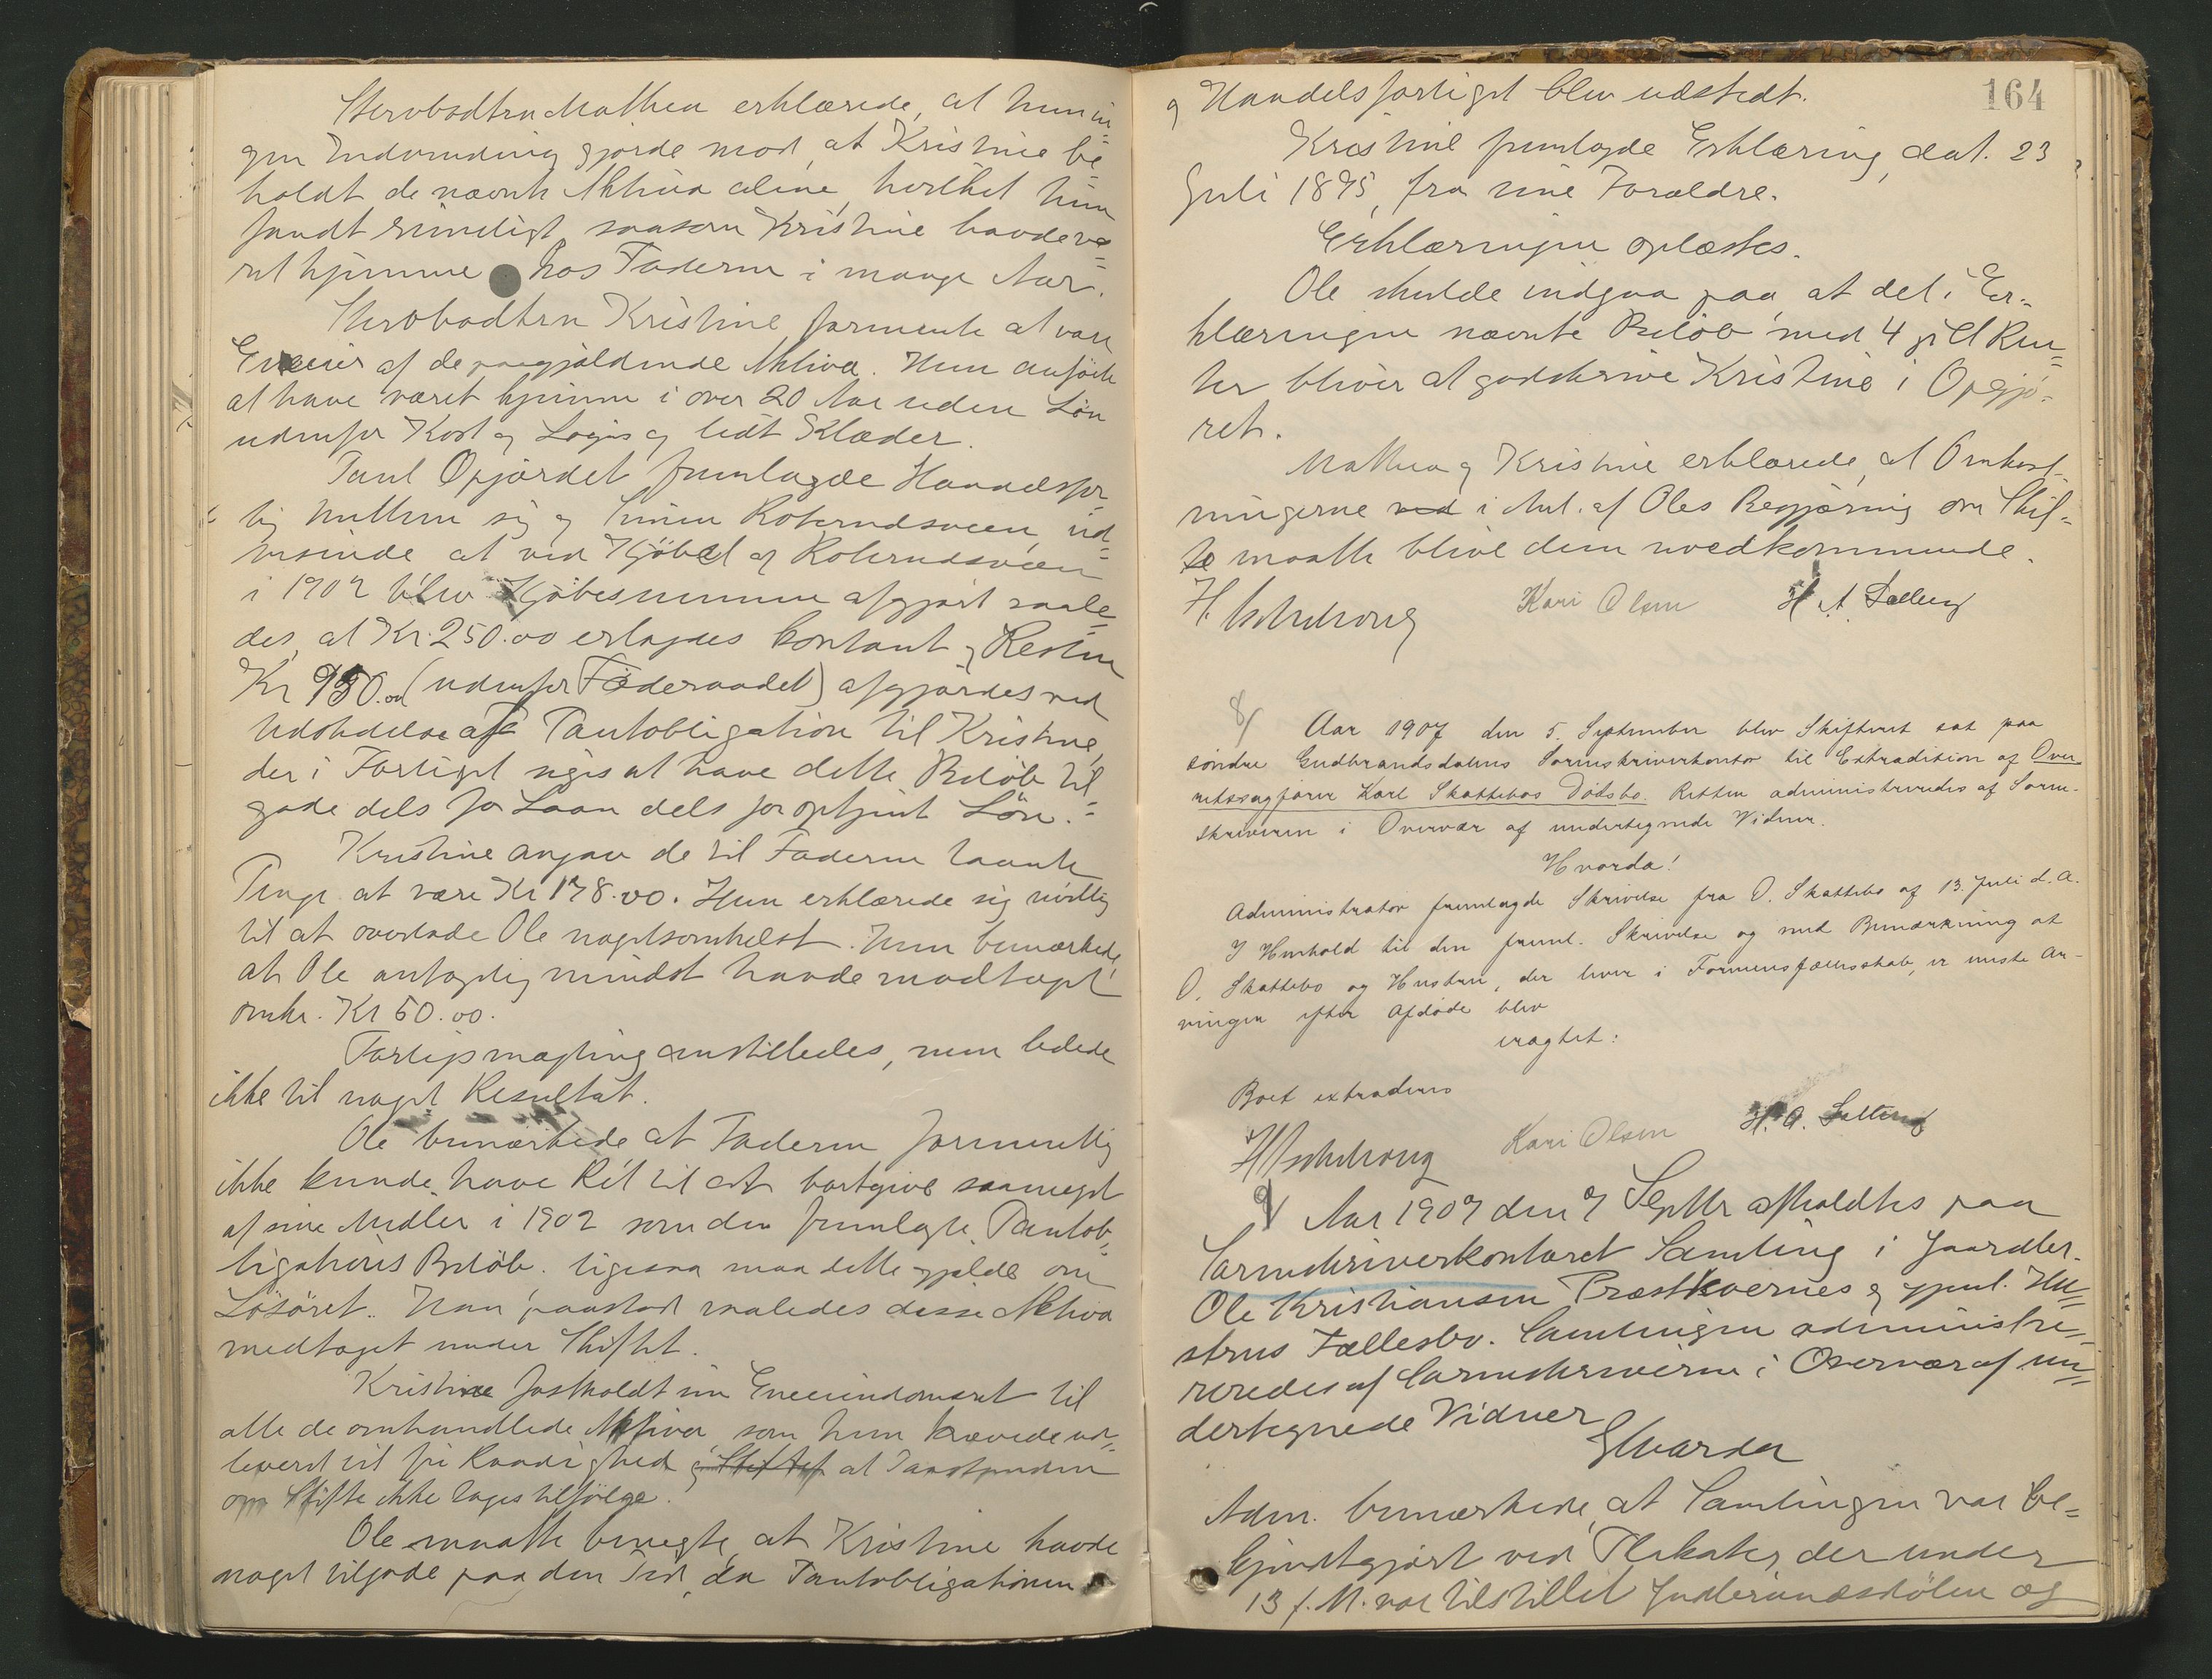 Stervbodtrn Mathea erklærede, at hun in-
gen Indvending gjorde mod, at Kristine be-
holdt de nævnte Aktiva alene, hvilket hun
fandt rimeligt, saasom Kristine havde væ-
ret hjemme hos Faderen i mange Aar.
Stervbodtrn Kristine formente at være
Eneeier af de paagjældende Aktiva. Hun anførte
at have været hjemme i over 20 Aar uden Løn
udenfor Kost og Logis og lidt Klæder.
Paul Opjordet fremlagde Handelsfor-
lig mellem sig og Simen Roterudsveen, ud-
visende at ved Kjøbet af Roterudsveen
i 1902 blev Kjøbesummen afgjort saale-
des, at Kr. 250.00 erlagdes kontant og Resten
Kr 950.00 (udenfor Føderaadet) afgjordes ved
Udstedelse af Pantobligation til Kristine,
der i Forliget siges at have dette Beløb til-
gode dels for Laan dels for optjent Løn.
Kristine angav de til Faderen laante
Penge at være Kr 178.00. Hun erklærede sig uvillig
til at overlade Ole nogetsomhelst. Hun bemærkede,
at Ole antagelig mindst havde modtaget
omkr. Kr 50.00.
Forligsmægling anstilledes, men ledede
ikke til noget Resultat.
Ole bemærkede at Faderen formentlig
ikke kunde have Ret til at bortgive saameget
af sine Midler i 1902 som den fremlagte Pantob-
ligations Beløb. ligesaa maa dette gjælde om
Løsøret. Han paastod saaledes disse Aktiva
medtaget under Skiftet.
Kristine fastholdt sin Eneeiendomsret til
alle de omhandlede Aktiva som hun krævede ud-
leveret til fri Raadighed og Skiftet at Paastanden
om Skifte ikke toges tilfølge.
Ole maatte benegte, at Kristine havde
noget tilgode paa den Tid, da Pantobligationen
164
og Handelsforliget blev udstedt.
Kristine fremlagde Erklæring, dat. 23
Juli 1895, fra sine Forældre.
Erklæringen oplæstes.
Ole skulde indgaa paa, at det i Er-
klæringen nævnte Beløb med 4 pCt Ren-
ter bliver at godskrive Kristine i Opgjø-
ret.
Mathea og Kristine erklærede, at Omkost-
ningerne ved i Anl. af Oles Begjæring om Skif-
te maatte blive dem uvedkommende.
Kari Olsen H. A.
8/ Aar 1907 den 5. September blev Skifteret sat paa
søndre Gudbrandsdalens Sorenskriverkontor til Extradition af Over-
retssagfører Karl Skattebos Dødsbo. Retten administreredes af Soren-
skriveren i Overvær af undertegnede Vidner.
Hvorda!
Administrator fremlagde Skrivelse fra O. Skattebo af 13. Juli d. A.
I Henhold til den freml. Skrivelse og med Bemærkning at
O. Skattebo og Hustru, der lever i Formuesfællesskab, er eneste Ar-
vinger efter afdøde blev
eragtet:
Boet extraderes
Kari Olsen H. A.
9/ Aar 1907 den 7 Septbr afholdtes paa
Sorenskriverkontoret Samling i Gaardbr.
Ole Kristiansen Præstkvernes og gjenl. Hu-
strus Fællesbo. Samlingen administre-
reredes af Sorenskriveren i Overvær af un-
dertegnede Vidner
Hvorda
Adm. bemærkede, at Samlingen var be-
kjendtgjort ved Plakater, der under
13 f. M. var tilstillet og